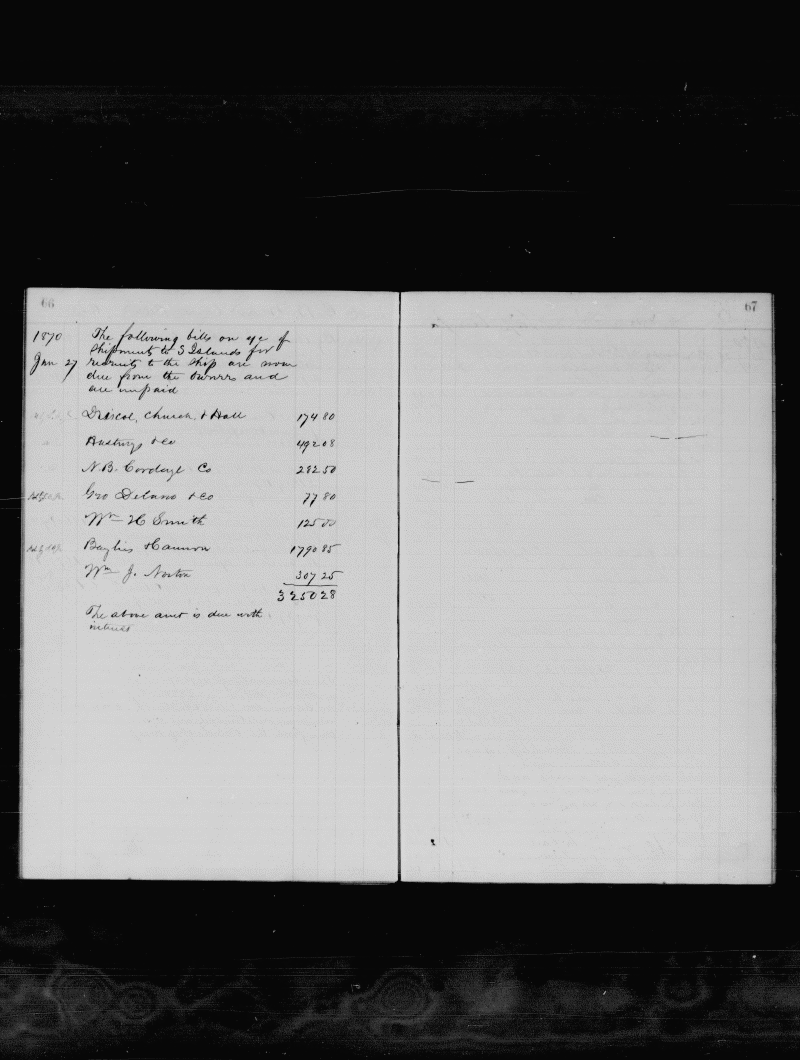 66
67
1870 The following bills on a/c of
Shipments to S Islands for
Jan 27 recruits to the Ship are now
due from the Owners and
are unpaid
Driscol, Church & Hall 174 80
Hastings & Co 492 08
N.B. Cordage Co 282 50
Geo Delano & Co 77 80
Wm H Smith 125 00
Baylies & Cannon 1790 85
Wm J. Norton 307 25
3250 28
The above amt is due with
interest